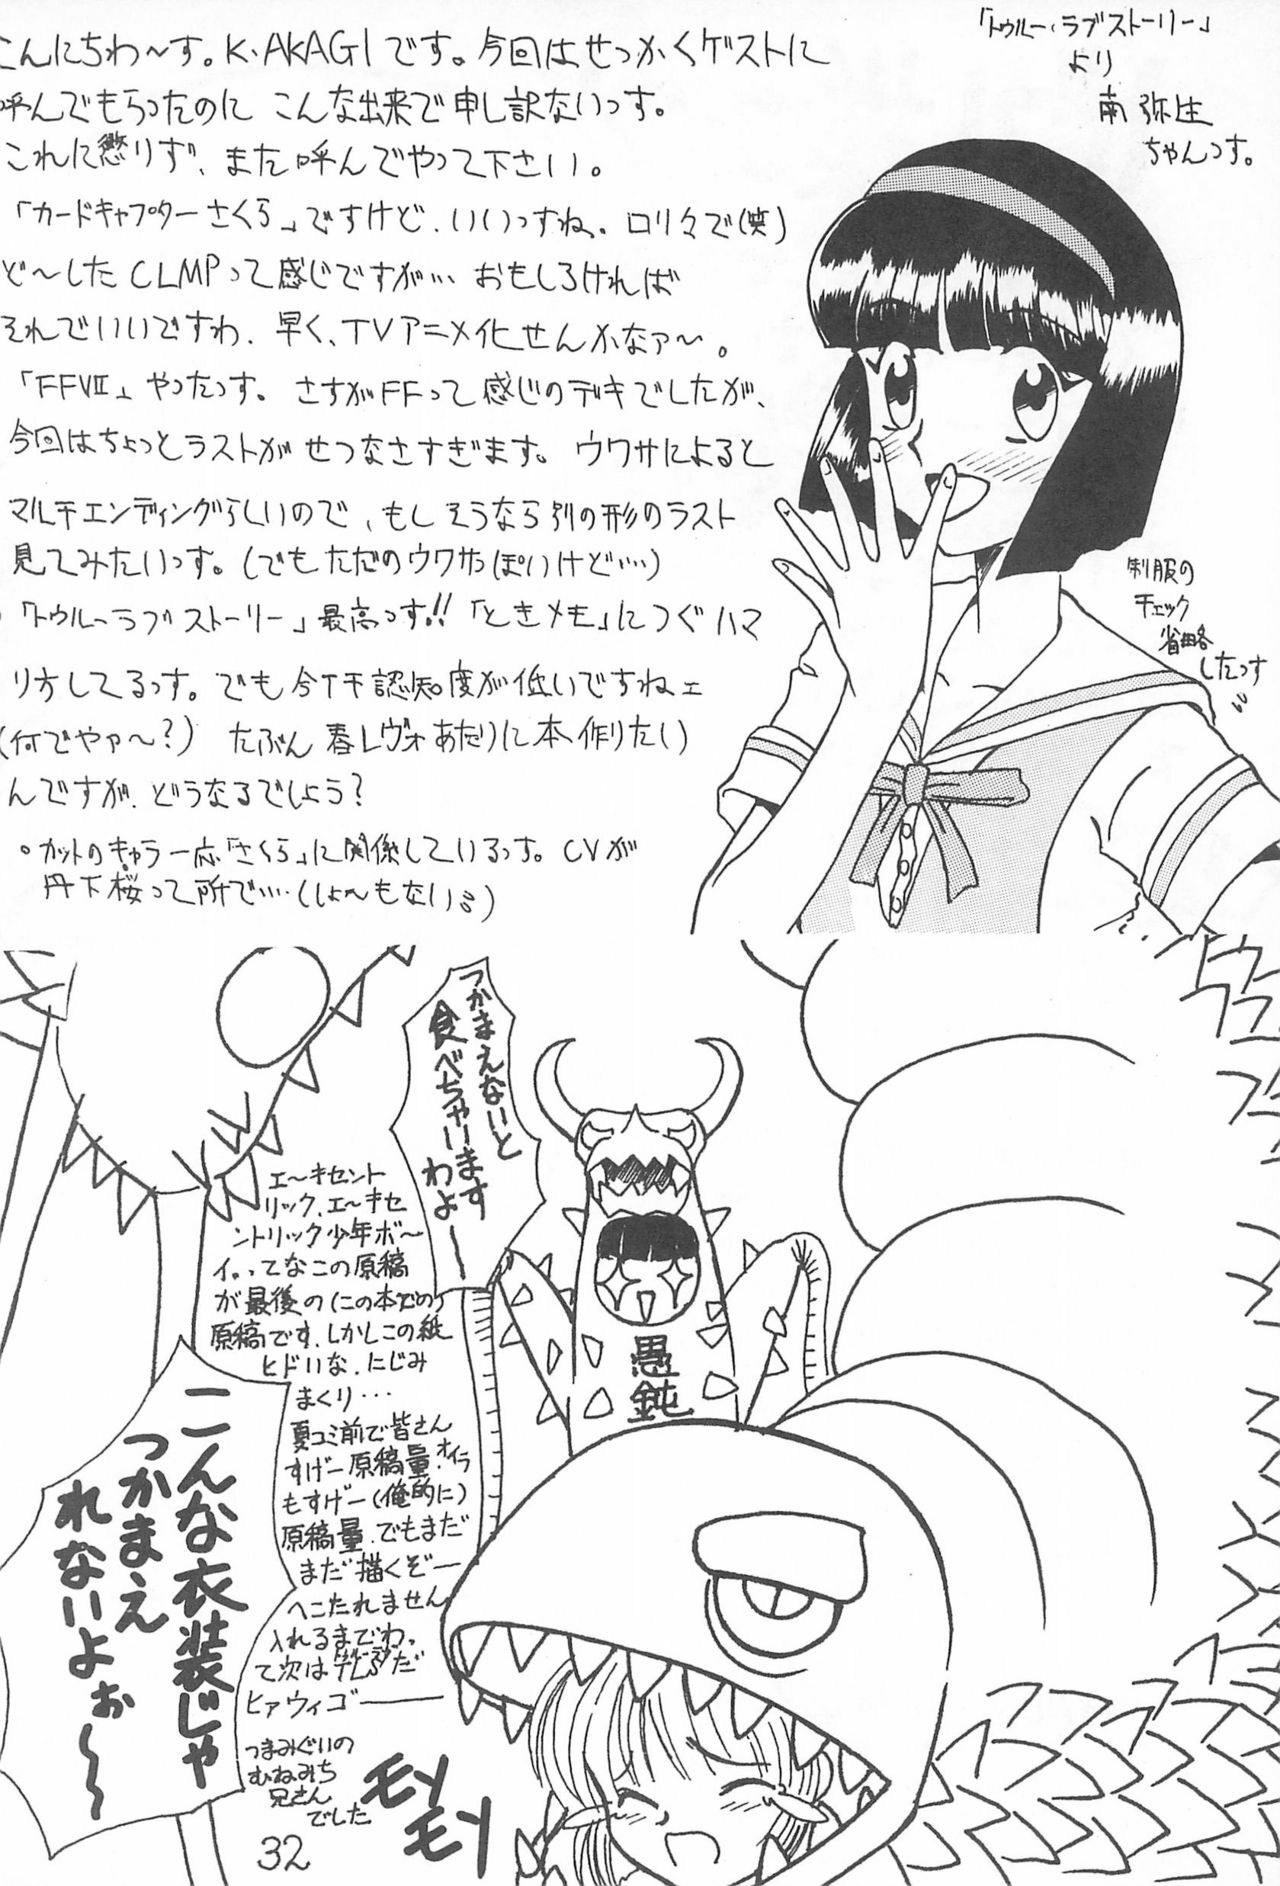 こんにちわ〜す。K・AKAGIです。今回はせっかくゲストに
呼んでもらったのに こんな出来で申し訳ないっす。
これに懲りず、また呼んでやって下さい。
「カードキャプターさくら」ですけど、いいっすね。ロリ々で(笑)
ど〜したCLMPって感じですが… おもしろければ
それでいいですわ、早く、TVアニメ化せんかなァ〜。
「FFⅦ」やったっす。さすがFFって感じのデキでしたが、
今回はちょっとラストがせつなさすぎます。ウワサによると
マルチエンディングらしいので、もしそうなら別の形のラスト
見てみたいっす。(でもただのウワサっぽいけど…)
「トゥルーラブストーリー」最高っす!!「ときメモ」につぐハマ
り方してるっす。でも今イチ認知度が低いですねェ
(何でやァ〜?) たぶん春レヴォあたりに本作りたい
んですが、どうなるでしょう?
・カットのキャラ一応「さくら」に関係しているっす。CVが
丹下桜って所で…(しょ〜もない)
「トゥルー・ラブストーリー」
より
南弥生
ちゃんっす。
制服の
チェック
省略
したっす
つかまえないと
食べちゃいます
わよ〜
エ〜キセント
リック、エ〜キセ
ントリック少年ボ〜
イ。ってなこの原稿
が最後の(この本での)
原稿です、しかしこの紙
ヒドいな、にじみ
まくり…
夏コミ前で皆さん
すげー原稿量、オイラ
もすげー(俺的に)
原稿量、でもまだ
まだ描くぞー
へこたれません
入れるまでわ。
て次は だ
ヒァウィゴー
つまみぐいの
むねみち
兄さん
でした
こんな衣装じゃ
つかまえ
れないよぉ〜
愚
鈍
モソ
モソ
32